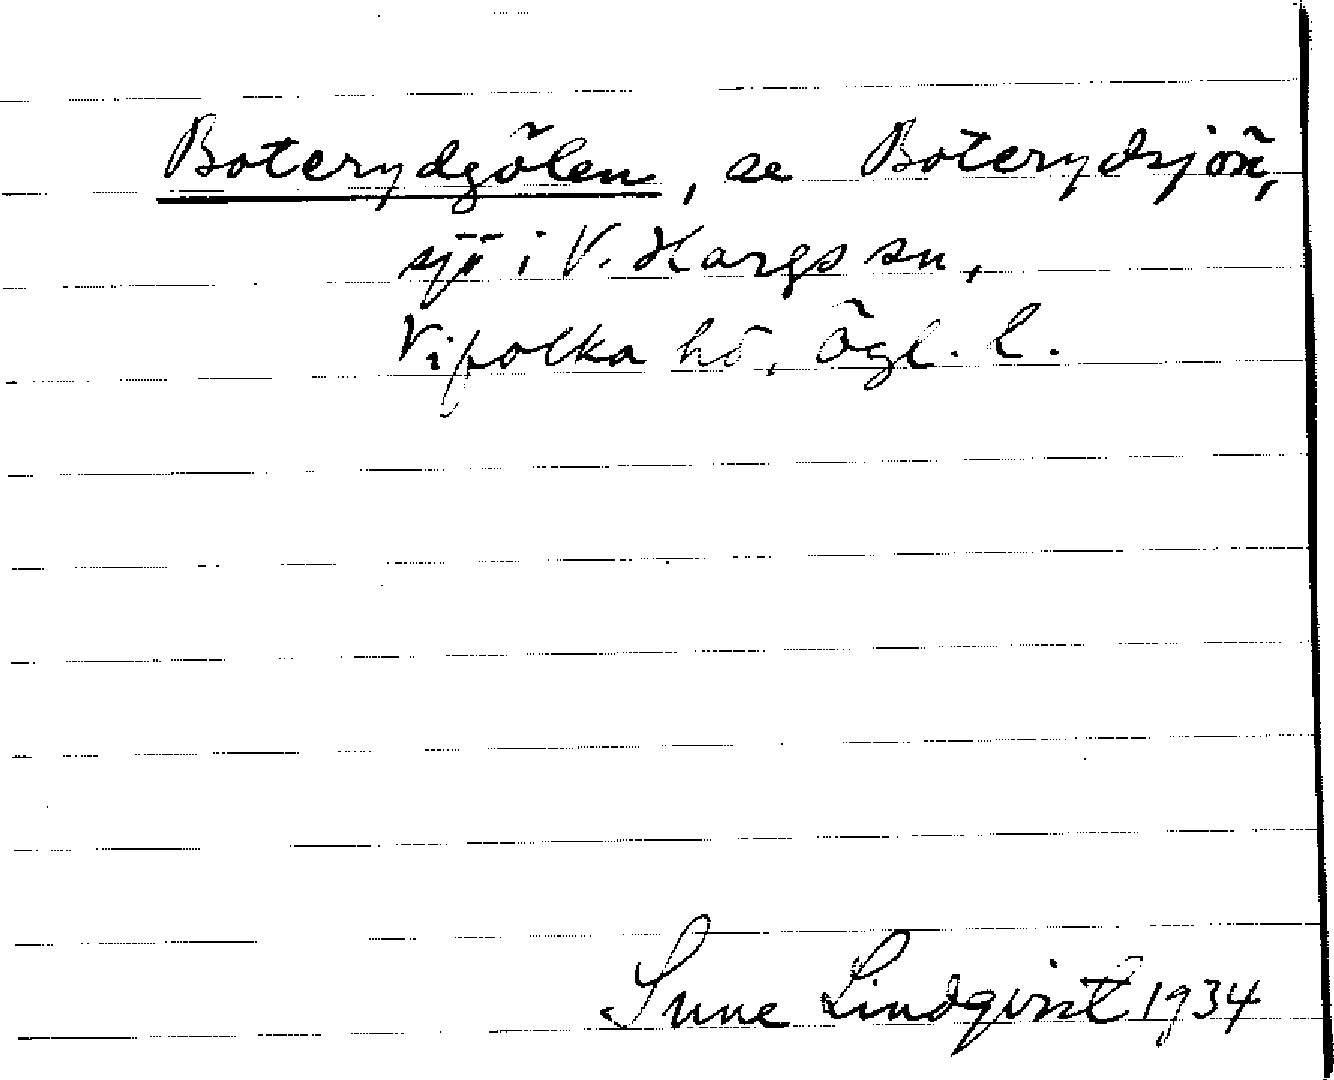 Boterydgölen, se Boterydsjön,
sjö i V. Hargs sn,
Vifolka hd, Ögl. l.
Sune Lindqvist 1934